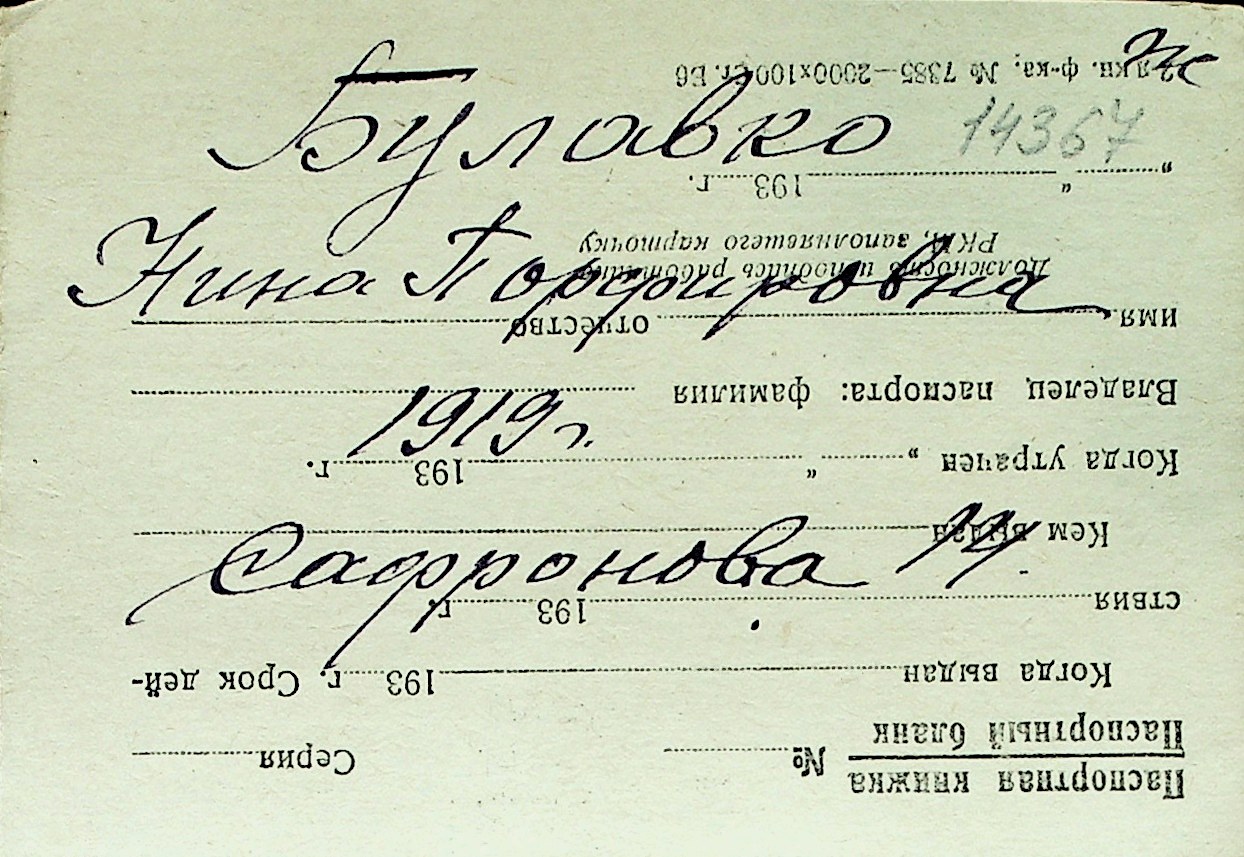 Булавко
14367
Нина Порфировна
1919 г.
Сафронова 14.
Паспортная книжка
Паспортный бланк
№ Серия
Когда выдан 193 г. Срок дей-
ствия 193 г.
Кем выдан
Когда утрачен „ “ 193 г.
Владелец паспорта: фамилия
имя отчество
Должность и подпись работника
РКМ, заполнявшего карточку
„ “ 193 г.
ф-ка, № 7385—2000x100